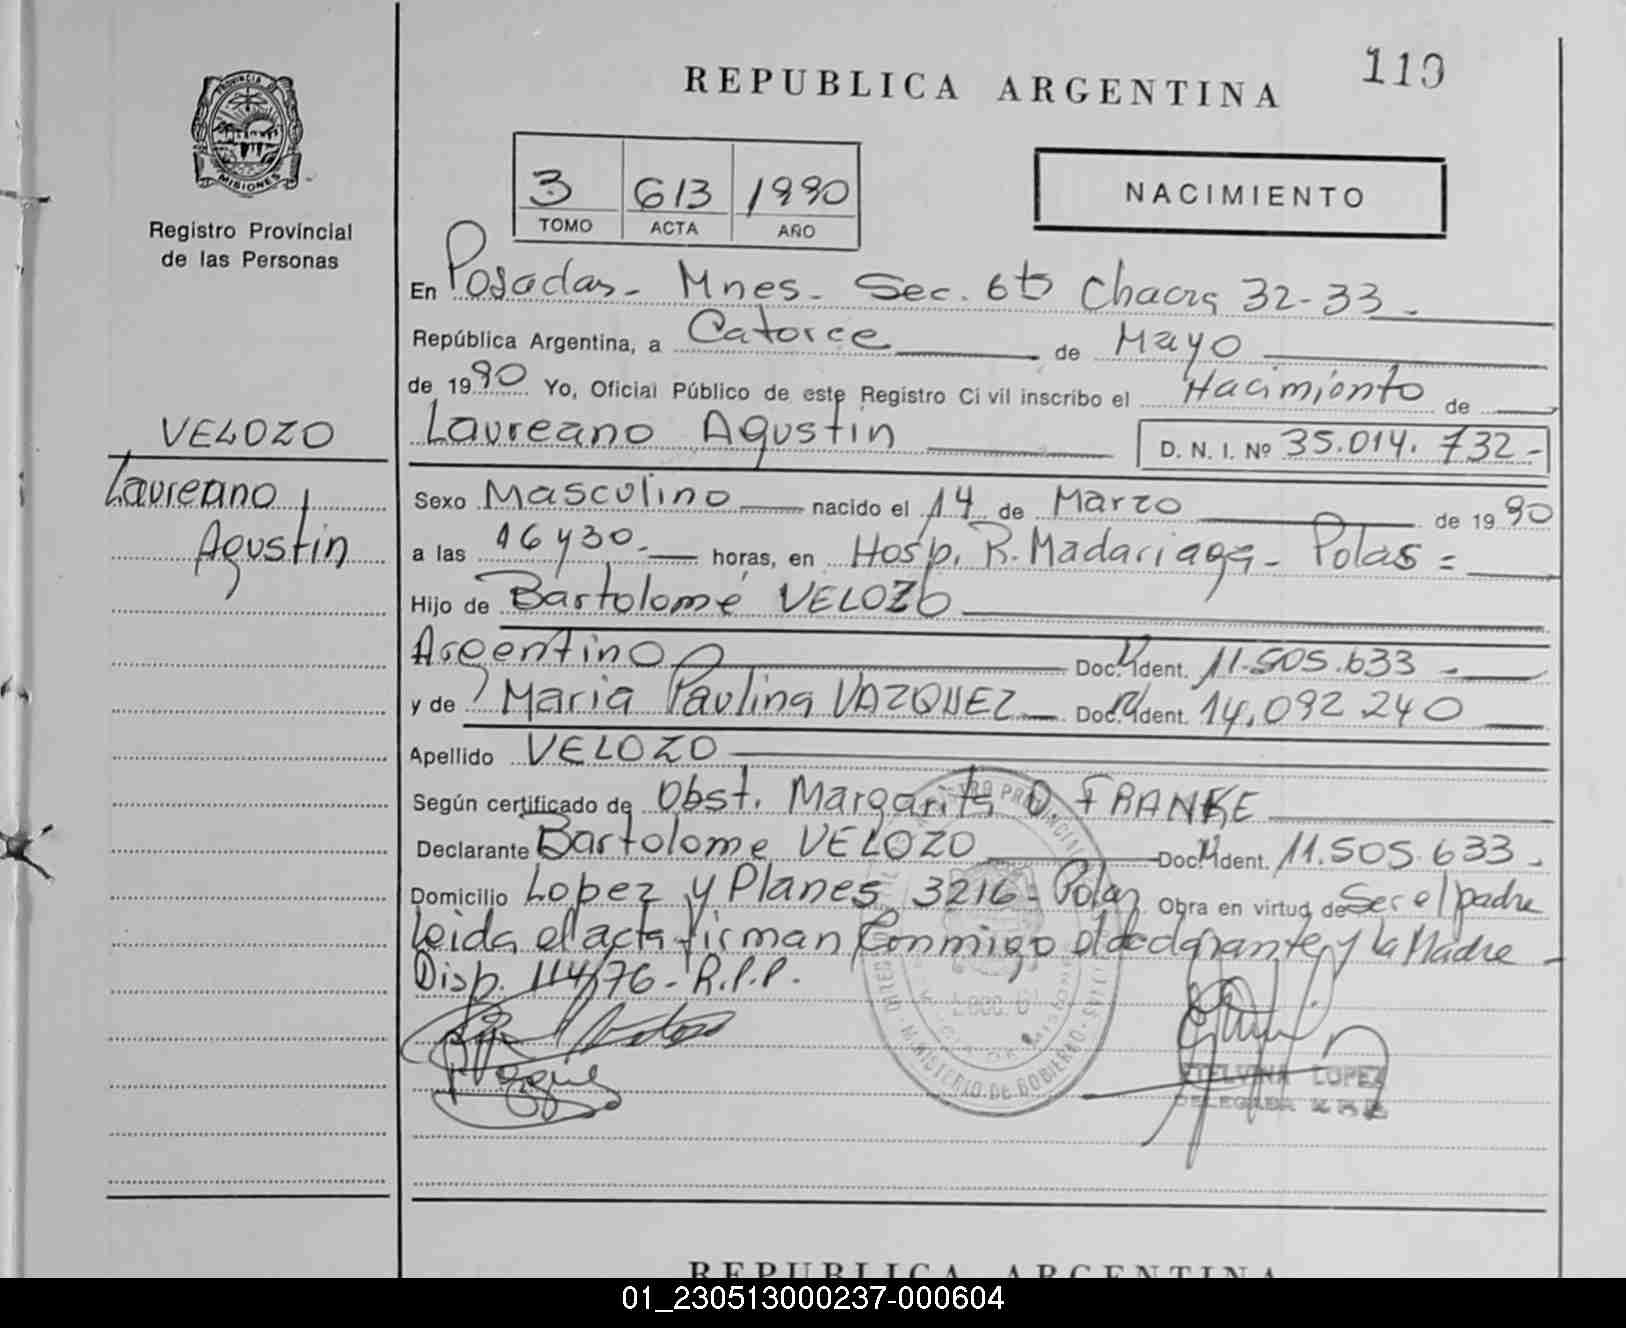 119
REPUBLICA ARGENTINA
PROVINCIA DE
MISIONES
Registro Provincial
de las Personas
3 613 1990
TOMO ACTA AÑO
NACIMIENTO
En Posadas - Mnes - Sec. 6ta Chacra 32-33 -
República Argentina, a Catorce de Mayo
de 1990 Yo, Oficial Público de este Registro Civil inscribo el Nacimiento de
VELOZO
Laureano Agustin
Laureano Agustin D. N. I. Nº 35.014.732-
Sexo Masculino nacido el 14 de Marzo de 1990
a las 16 y 30.- horas, en Hosp. R. Madariaga - Pdas =
Hijo de Bartolomé VELOZO
Argentino Doc. Ident. 11.505.633 -
y de Maria Paulina VAZQUEZ Doc. Ident. 14.092 240
Apellido VELOZO
Según certificado de Obst. Margarita D. FRANKE
Declarante Bartolome VELOZO Doc. Ident. 11.505.633.
Domicilio Lopez y Planes 3216 - Pdas Obra en virtud de Ser el padre
Leida el acta firman Conmigo el declarante y la Madre -
Disp. 114/76 - R.P.P.
MINISTERIO DE GOBIERNO
ETELVINA LOPEZ
DELEGADA
REPUBLICA ARGENTINA
01_230513000237-000604